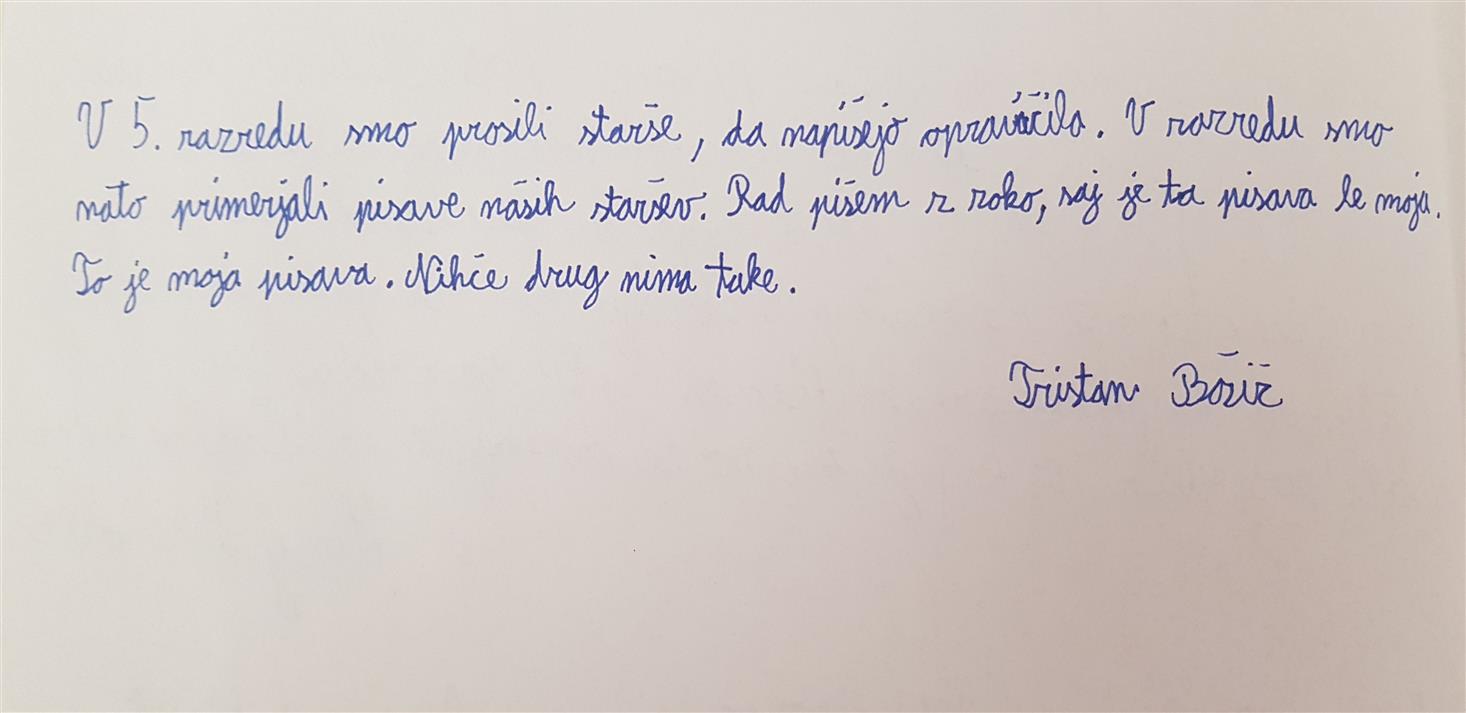 V 5. razredu smo prosili starše, da napišejo opravičilo. V razredu smo
nato primerjali pisave naših staršev. Rad pišem z roko, saj je ta pisava le moja.
To je moja pisava. Nihče drug nima take.
Tristan Božič